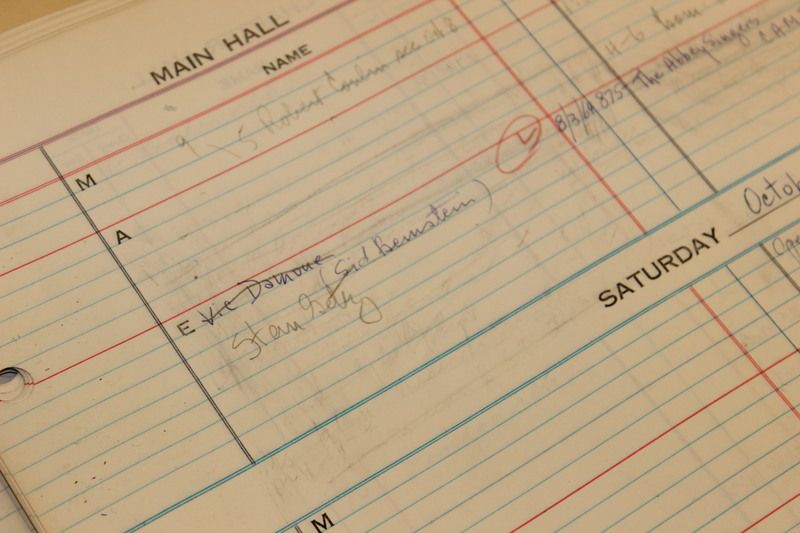 MAIN HALL
NAME
9-5 Robert
4-6
M
8/3/64 875- The Abbey Singers
CAM
A
E Vic Damone (Sid Bernstein)
Stan Getz
SATURDAY
M